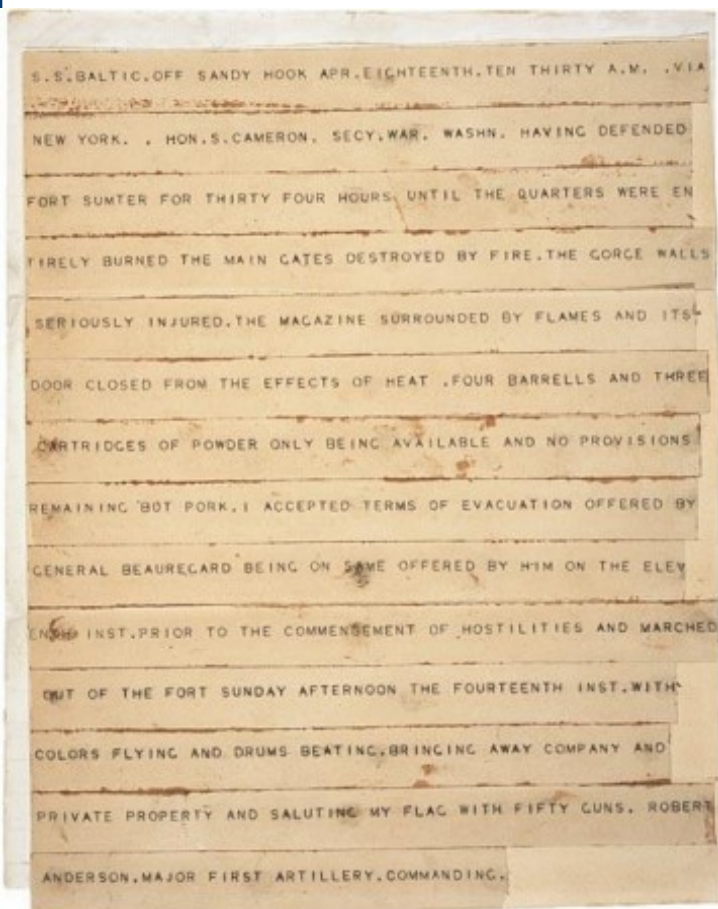 S.S.BALTIC.OFF SANDY HOOK APR.EIGHTEENTH.TEN THIRTY A.M. .VIA
NEW YORK. . HON.S.CAMERON. SECY.WAR. WASHN. HAVING DEFENDED
FORT SUMTER FOR THIRTY FOUR HOURS UNTIL THE QUARTERS WERE EN
TIRELY BURNED THE MAIN GATES DESTROYED BY FIRE.THE GORGE WALLS
SERIOUSLY INJURED.THE MAGAZINE SURROUNDED BY FLAMES AND ITS
DOOR CLOSED FROM THE EFFECTS OF HEAT .FOUR BARRELLS AND THREE
CARTRIDGES OF POWDER ONLY BEING AVAILABLE AND NO PROVISIONS
REMAINING BUT PORK.I ACCEPTED TERMS OF EVACUATION OFFERED BY
GENERAL BEAUREGARD BEING ON SAME OFFERED BY HIM ON THE ELEV
ENTH INST.PRIOR TO THE COMMENSEMENT OF HOSTILITIES AND MARCHED
OUT OF THE FORT SUNDAY AFTERNOON THE FOURTEENTH INST.WITH
COLORS FLYING AND DRUMS BEATING.BRINGING AWAY COMPANY AND
PRIVATE PROPERTY AND SALUTING MY FLAG WITH FIFTY GUNS. ROBERT
ANDERSON.MAJOR FIRST ARTILLERY.COMMANDING.